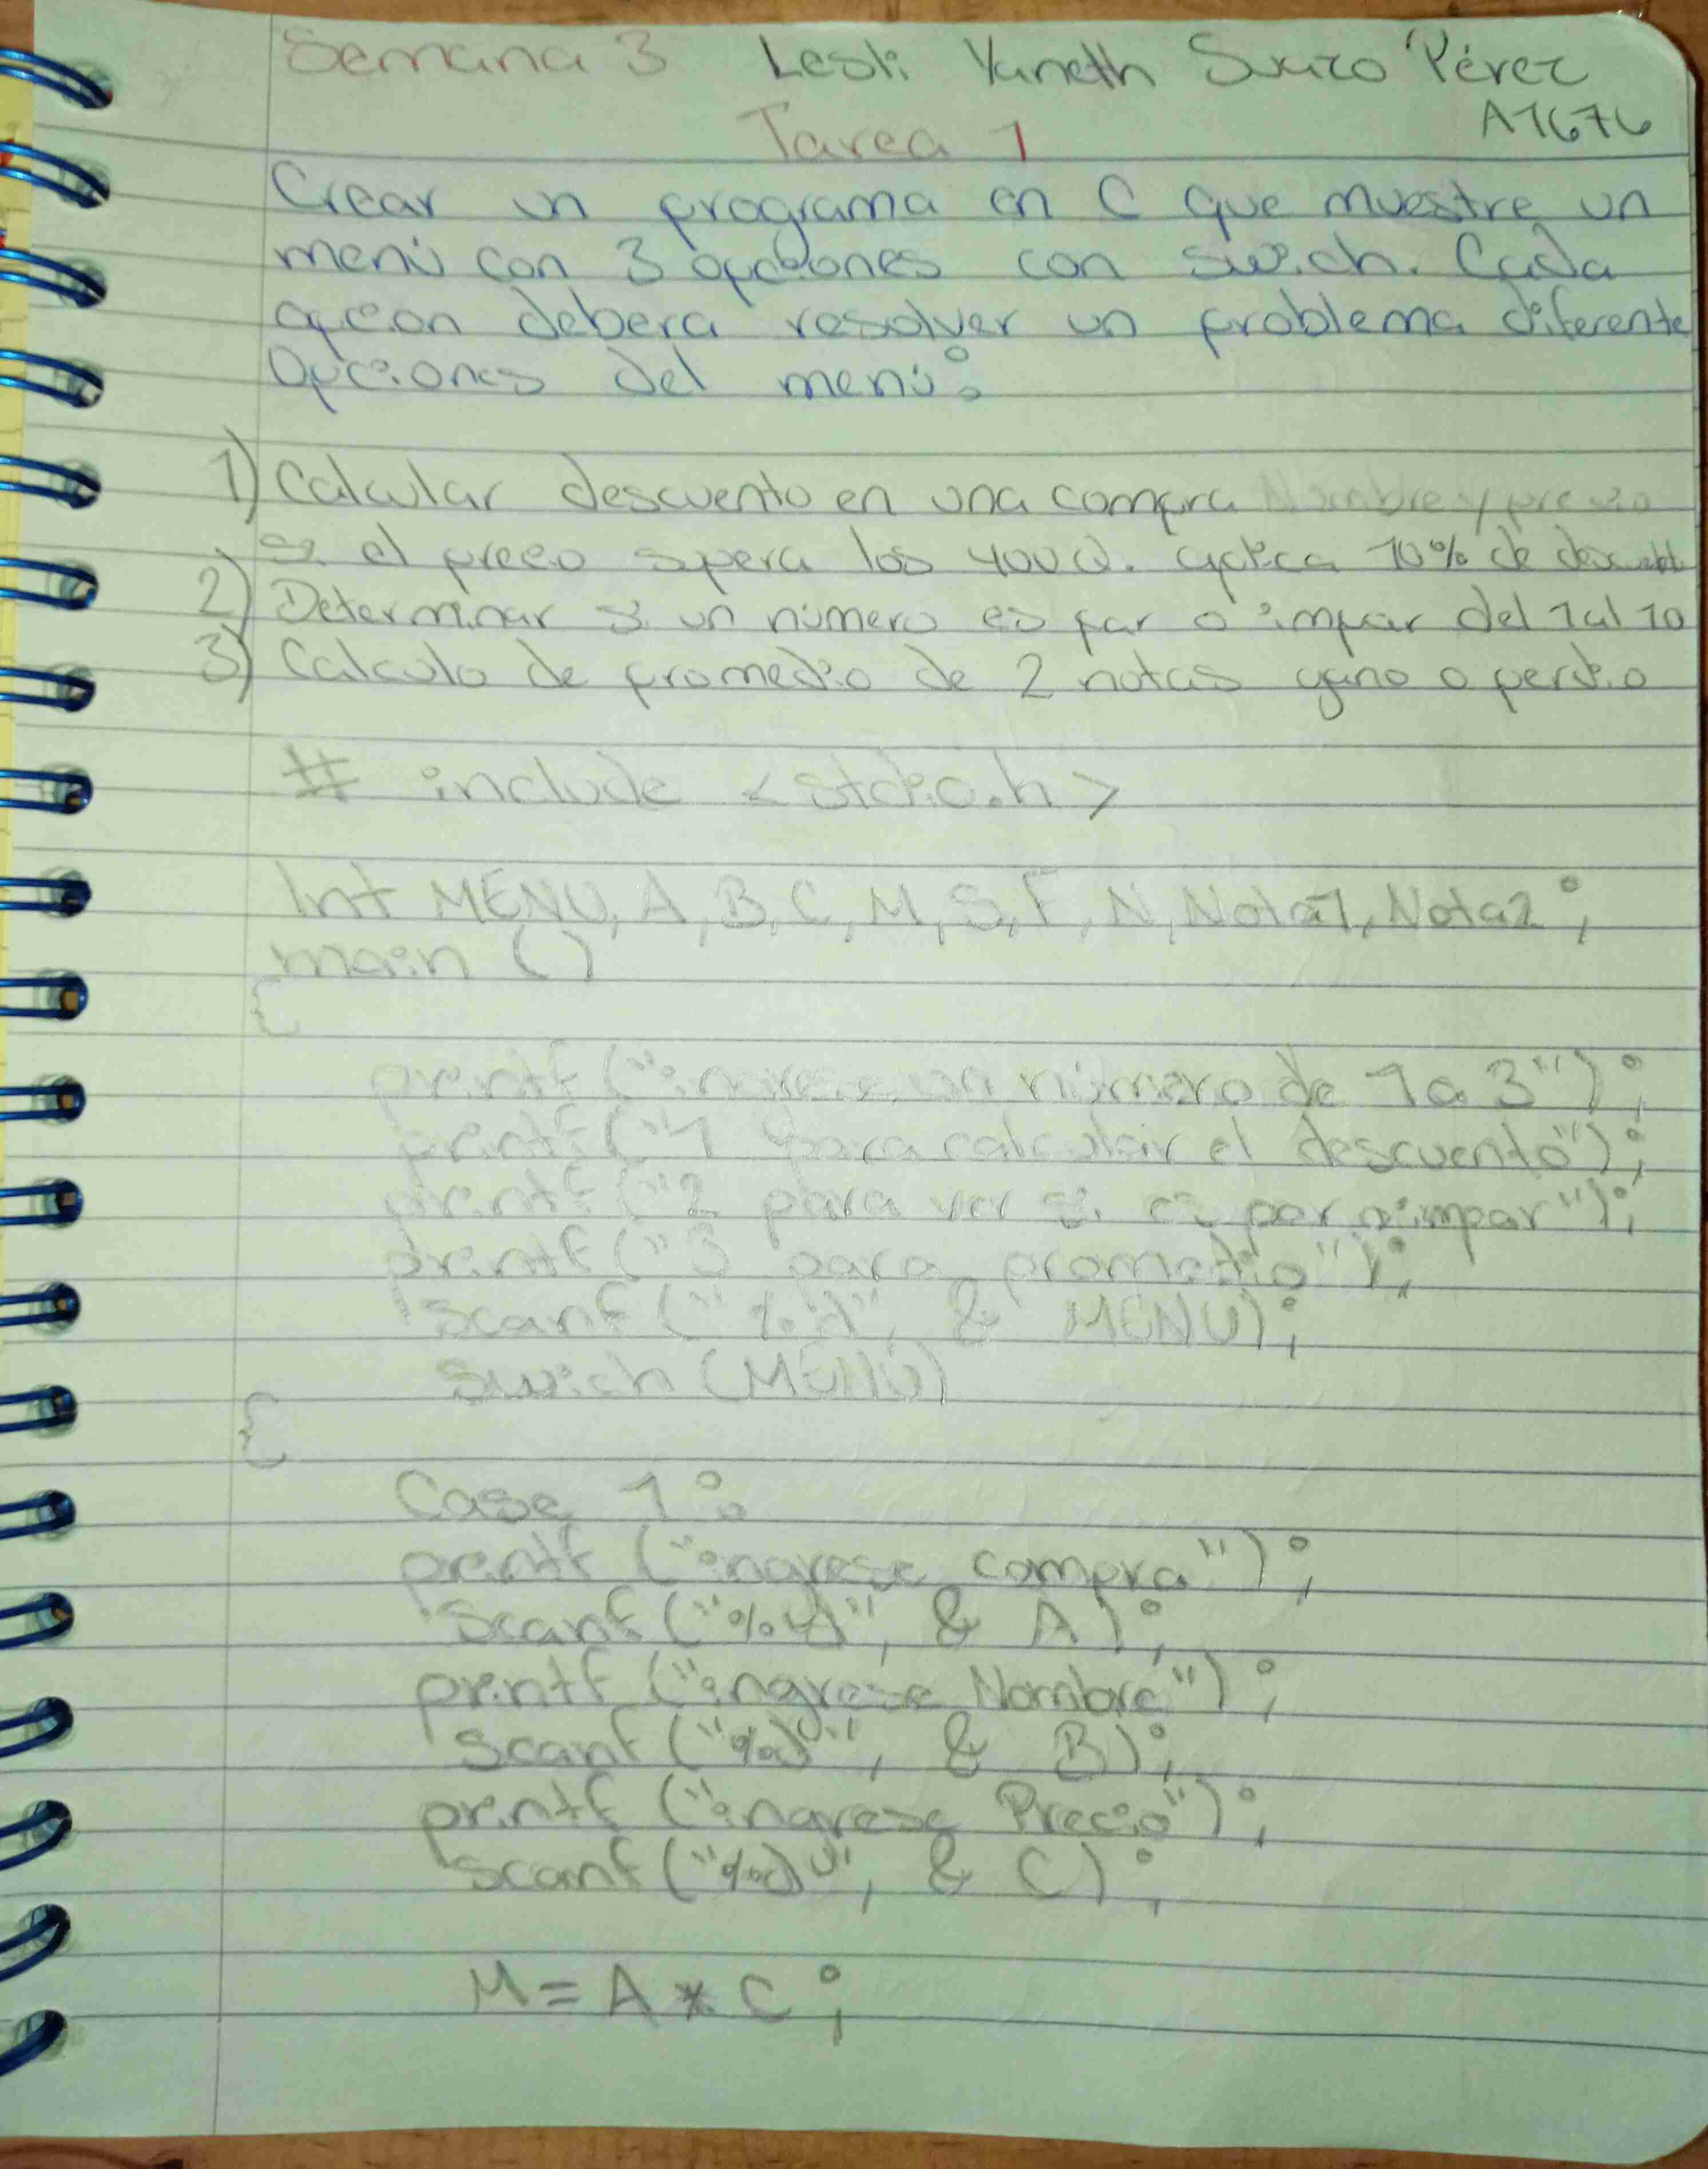 Semana 3 Lesli Yaneth Suazo Pérez
A1676
Tarea 1
Crear un programa en C que muestre un
menú con 3 opciones con swich. Cada
opcion debera resolver un problema diferente
Opciones del menú:
1) Calcular descuento en una compra Nombre y precio
si el precio supera los 400 Q. aplica 10% de descuento
2) Determinar si un número es par o impar del 1 al 10
3) Calculo de promedio de 2 notas gano o perdio
# include <stdio.h>
Int MENU, A, B, C, M, S, F, N, Nota1, Nota2;
main ()
{
printf ("ingrese un número de 1 a 3");
printf ("1 para calcular el descuento");
printf ("2 para ver si es par o impar");
printf ("3 para promedio");
scanf ("%d", & MENU);
swich (MENU)
{
Case 1:
printf ("ingrese compra");
scanf ("%d", & A);
printf ("ingrese Nombre");
scanf ("%d", & B);
printf ("ingrese Precio");
scanf ("%d", & C);
M = A * C;